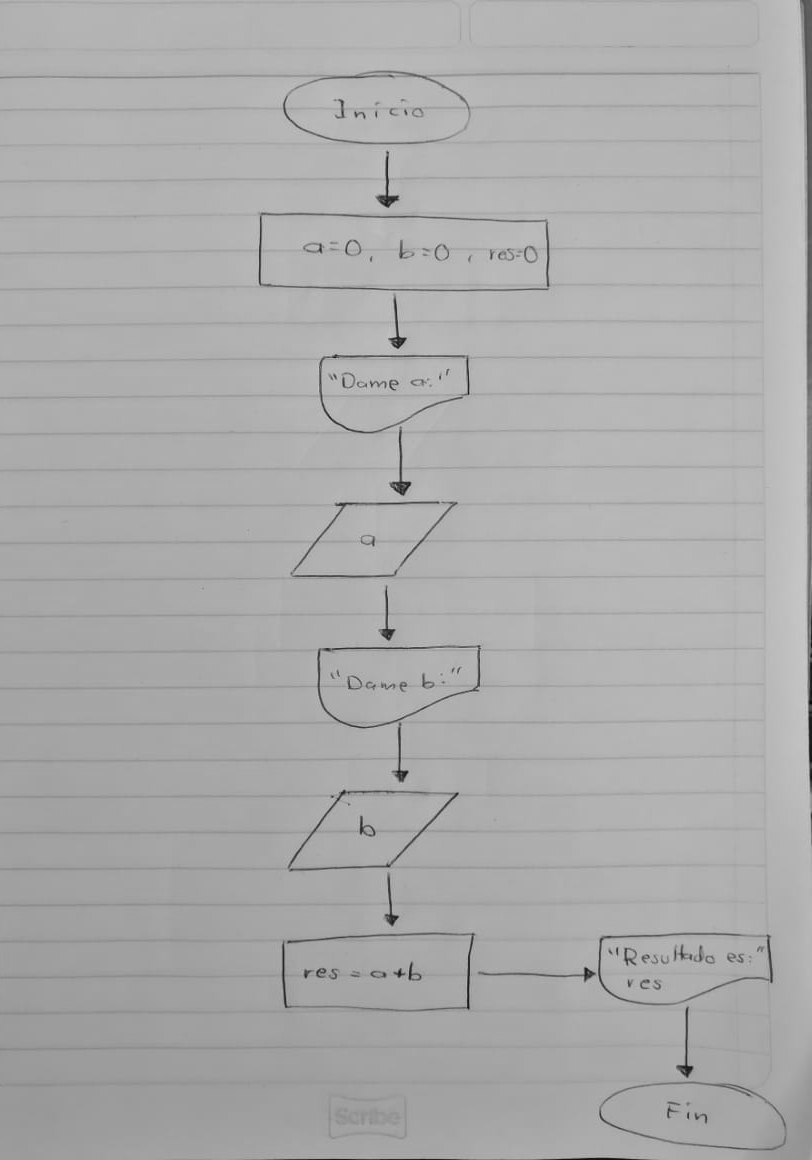 Inicio
a=0, b=0, res=0
"Dame a:"
a
"Dame b:"
b
res = a+b
"Resultado es:"
res
Fin
Scribe